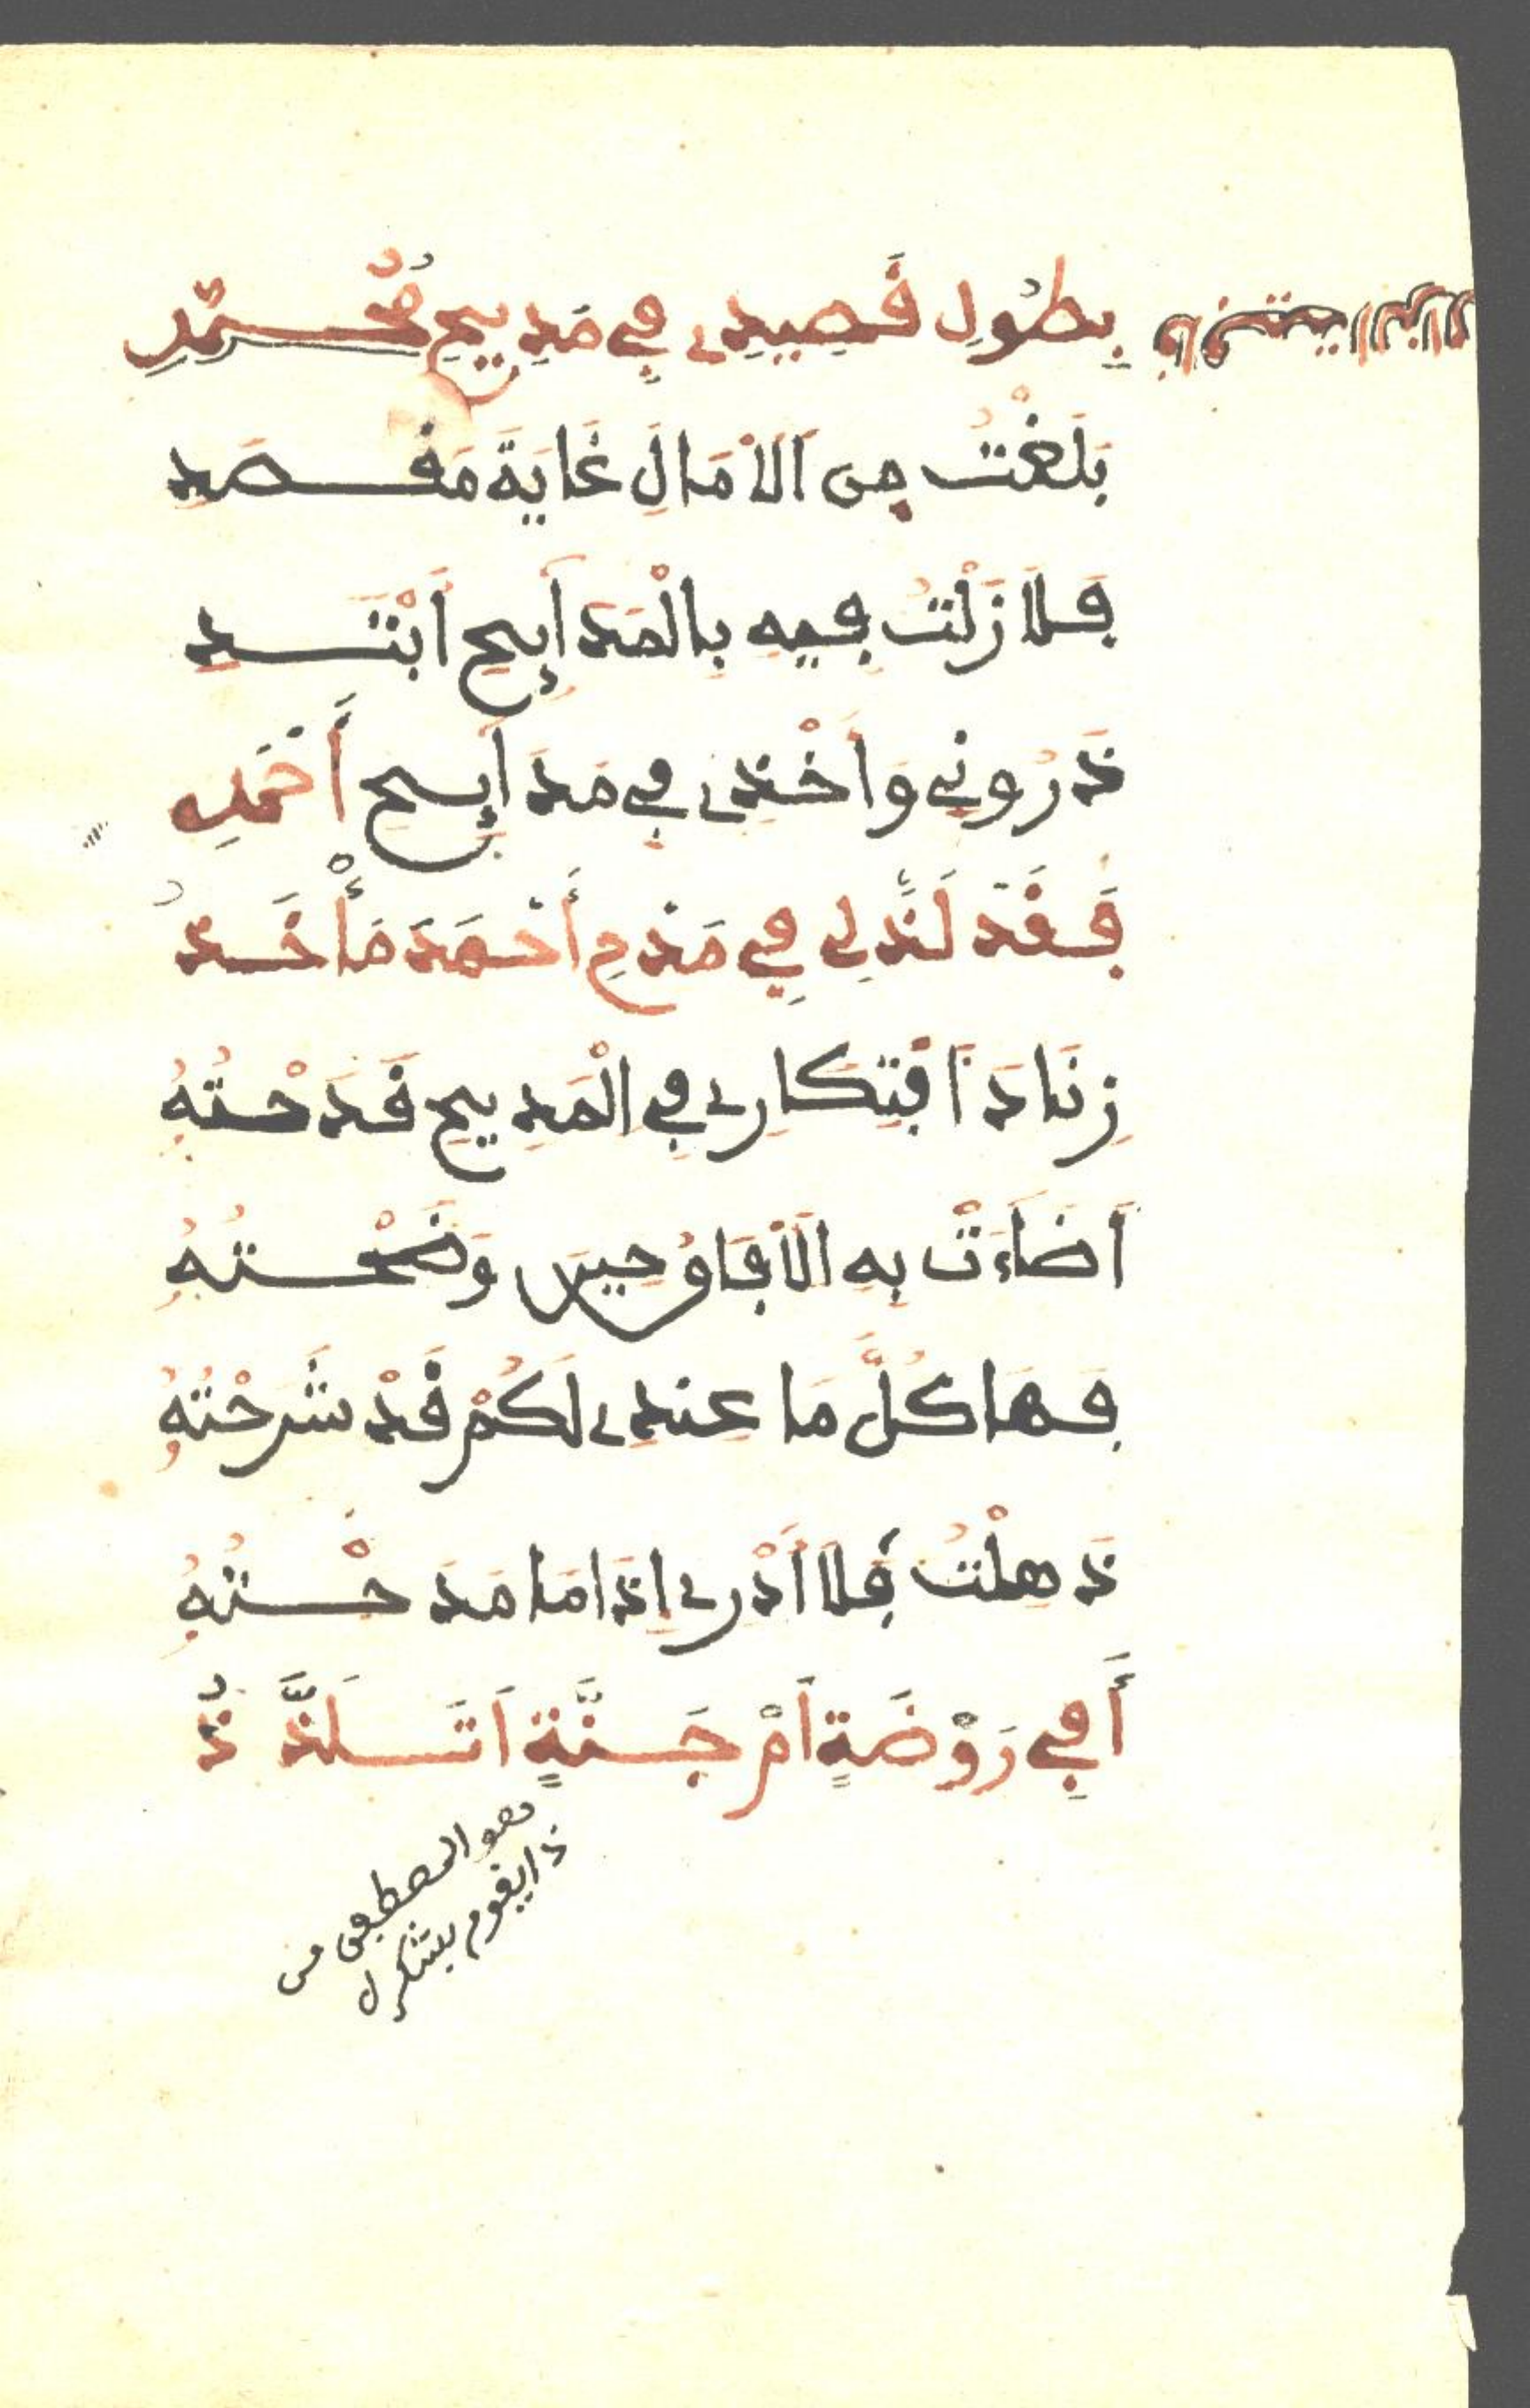 بِطُولِ قَصِيدِى فِى مَدِيحِ مُحَمَّدِ
بَلَغْتُ مِنَ اَلاْمَالِ غَايَةَ مَقْصَدِ
فَلَا زَلْتُ فِيهِ بِالْمَدَاىِٕحِ اَبْتَدِ
ذَرُونِى وَاَخْذِى فِى مَدَاىِٕحِ أَحْمَدِ
فَقَدْ لَذَّ لِى فِى مَدْحِ أَحْمَدَ مَأْخَذُ
زِنَادَ اَفْتِكَارِى فِى الْمَدِيحِ قَدَحْتُهُ
اَضَاءَتْ بِهِ اَلاْفَاقُ حِينَ وَضَحْتُهُ
فَهَا كُلُّ مَا عِندِى لَكُمْ قَدْ شَرَحْتُهُ
ذَهِلْتُ فَلَا اَدْرِى اِذَا مَا مَدَحْتُهُ
أَفِى رَوْضَةٍ اَمْ جَنَّةٍ اَتَلَذَّذُ
هو المصطفى من
ذا يقوم بشكر ل